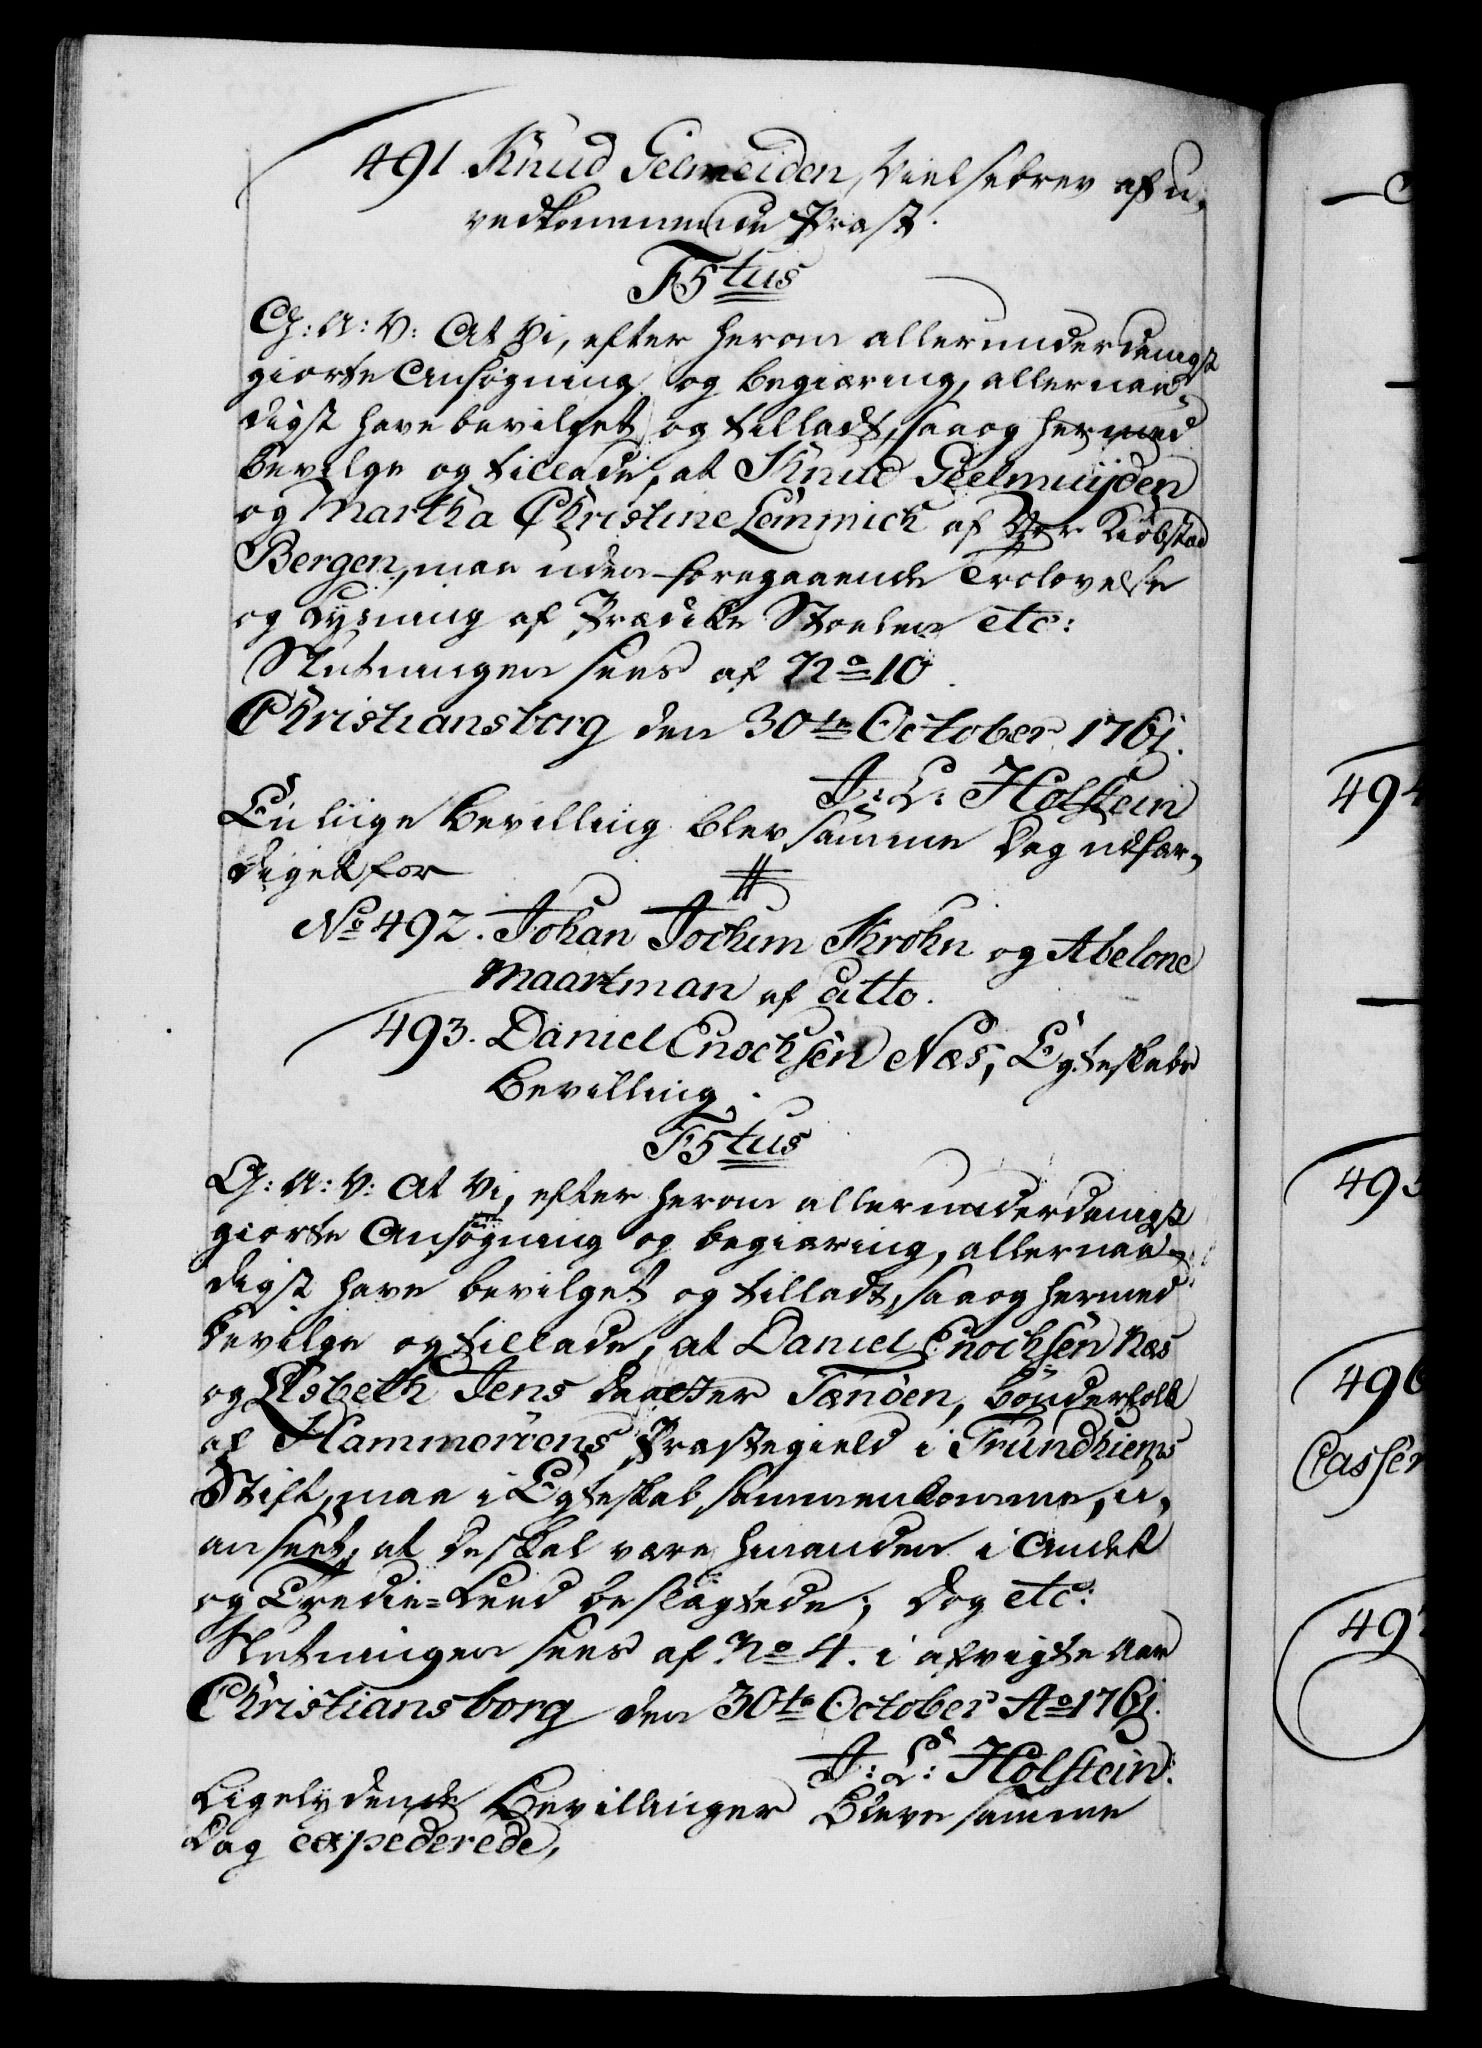 491. Knud Gelmeiden, Vielsebrev af u,
vedkommende Præst.
F5tus
G: A: V: At Vi, efter herom allerunderdanigst
giorte Ansøgning og begiæring, allernaa,
digst have bevilget og tilladt, saa og hermed
bevilge og tillade, at Knud Geelmuijden
og Martha Christine Leinmich af Vor Kiøbstad
Bergen, maa uden foregaaende Trolovelse
og Lysning af Prædike Stoelen etc:
Slutningen sees af No 10.
Christiansborg den 30te October 1761.
J: L: Holstein
En liige Bevilling blev samme Dag udfær,
diget for
No 492. Johan Jochim Krohn og Abelone
Maartman af ditto.
493. Daniel Enochsen Næs, Egteskabs
Bevilling.
F5tus
G: A: V: At Vi, efter herom allerunderdanigst
giorte Ansøgning og begiæring, allernaa-
digst have bevilget og tilladt, saa og hermed
bevilge og tillade, at Daniel Enochsen Næs
og Elsbeth Jens daatter Tænøen, bønderfolk
af Hammerøens Præstegield i Trundhiems
Stift, maa i Egteskab sammenkomme, u,
anseet, at de skal være hinanden i Andet
og Tredie=Leed beslægtede; Dog etc:
Slutningen sees af No 4. i afvigte Aar
Christiansborg den 30te October Ao 1761.
J: L: Holstein.
Ligelydende Bevillinger bleve samme
Dag expederede,
494
495
496
Casser
497